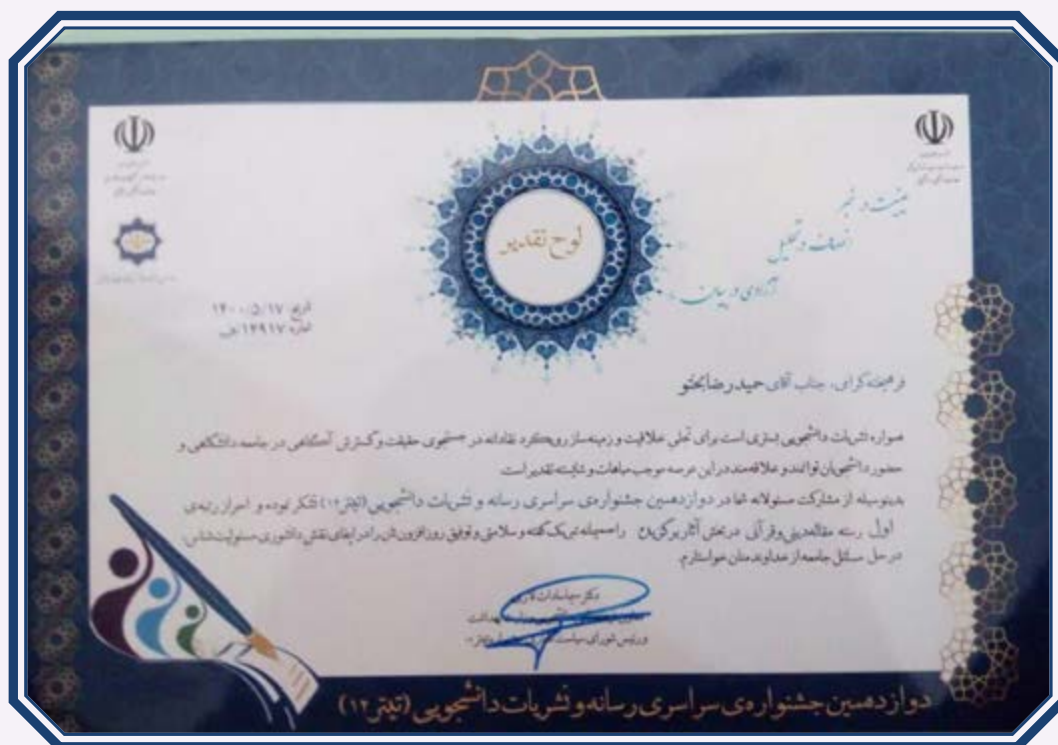 لوح تقدیر
انصاف در تحلیل
آزادی در بیان
تاریخ: ۱۴۰۰/۵/۱۷
شماره: ۱۴۹۱۷/ف
فرهیخته گرامی، جناب آقای حمیدرضا بختو
همواره نشریات دانشجویی بستری است برای تجلی خلاقیت و زمینه‌ساز رویکرد نقادانه در جستجوی حقیقت و گسترش آگاهی در جامعه دانشگاهی و
حضور دانشجویان توانمند و علاقه‌مند در این عرصه موجب مباهات و شایسته تقدیر است
بدینوسیله از مشارکت مسئولانه شما در دوازدهمین جشنواره‌ی سراسری رسانه و نشریات دانشجویی (تیتر۱۲) تشکر نموده و احراز رتبه‌ی
اول رسته مقاله دینی و قرآنی در بخش آثار برگزیده را صمیمانه تبریک گفته و سلامتی و توفیق روزافزون‌تان را در ایفای نقش دانشوری مسئولیت‌شناس،
در حل مسائل جامعه از خداوند منان خواستارم.
دکتر سیماسادات لاری
و رئیس شورای سیاست
دوازدهمین جشنواره‌ی سراسری رسانه و نشریات دانشجویی (تیتر۱۲)